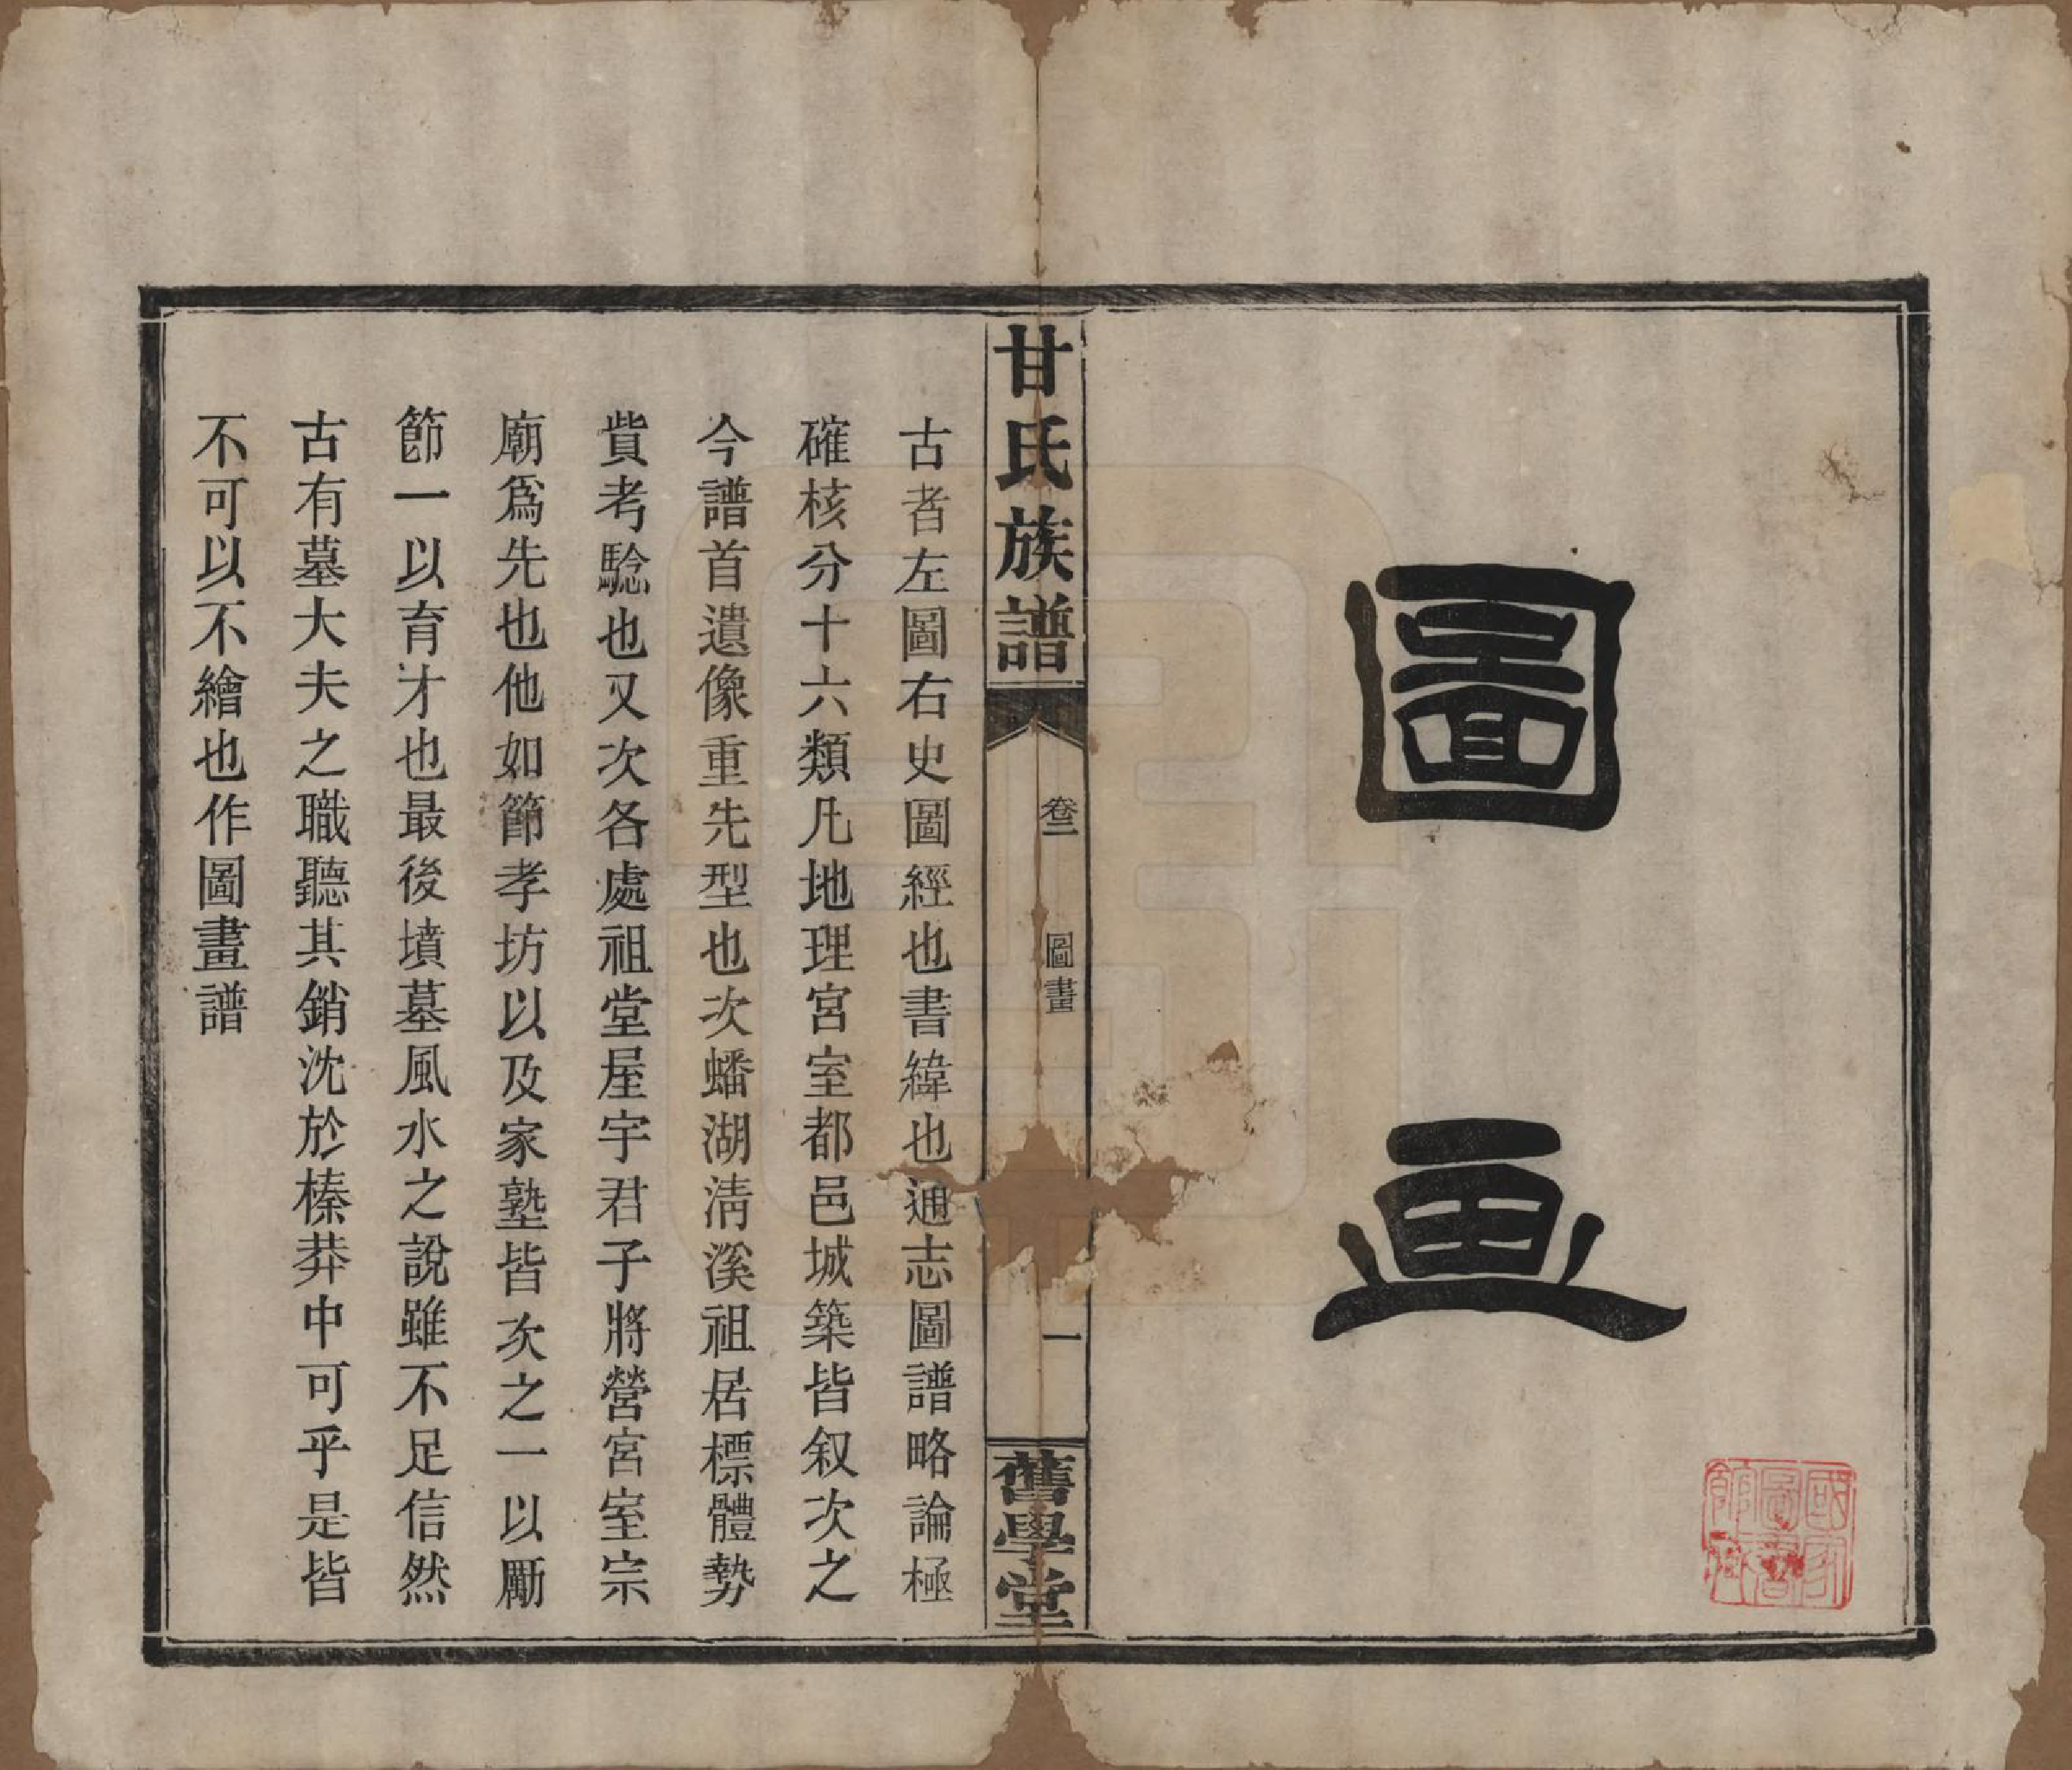 圖畫
國家圖書館藏
甘氏族譜
卷二
圖畫
一
舊學堂
古者左圖右史圖經也書緯也通志圖譜略論極
確核分十六類凡地理宮室都邑城築皆叙次之
今譜首遺像重先型也次蟠湖淸溪祖居標體勢
貲考騐也又次各處祖堂屋宇君子將營宮室宗
廟爲先也他如節孝坊以及家塾皆次之一以厲
節一以育才也最後墳墓風水之說雖不足信然
古有墓大夫之職聽其銷沈於榛莽中可乎是皆
不可以不繪也作圖畫譜